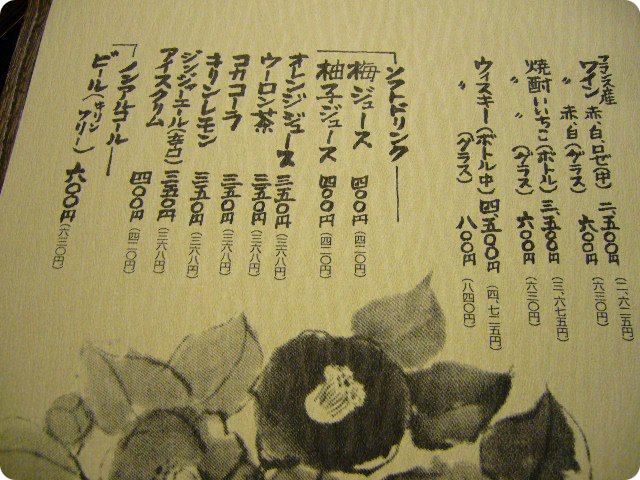 フランス産
ワイン 赤、白、ロゼ(中) 二、五〇〇円 (二、六二五円)
〃 赤、白(グラス) 六〇〇円 (六三〇円)
焼酎いいちこ(ボトル) 三、五〇〇円 (三、六七五円)
〃 〃 (グラス) 六〇〇円 (六三〇円)
ウィスキー(ボトル中) 四、五〇〇円 (四、七二五円)
〃 (グラス) 八〇〇円 (八四〇円)
ソフトドリンク
梅ジュース 四〇〇円 (四二〇円)
柚子ジュース 四〇〇円 (四二〇円)
オレンジジュース 三五〇円 (三六八円)
ウーロン茶 三五〇円 (三六八円)
コカコーラ 三五〇円 (三六八円)
キリンレモン 三五〇円 (三六八円)
ジンジャーエール(辛口) 三五〇円 (三六八円)
アイスクリム 四〇〇円 (四二〇円)
ノンアルコール
ビール(キリンフリー) 六〇〇円 (六三〇円)